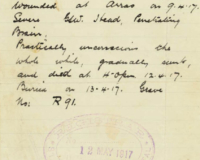 Wounded at Arras on 9.4.17.
Severe G.S.W. Head, Penetrating
Brain.
Practically unconscious the
whole while, gradually sank,
and died at 4-0pm 12.4.17.
Buried on 13.4.17. Grave
No: R 91.
12 MAY 1917